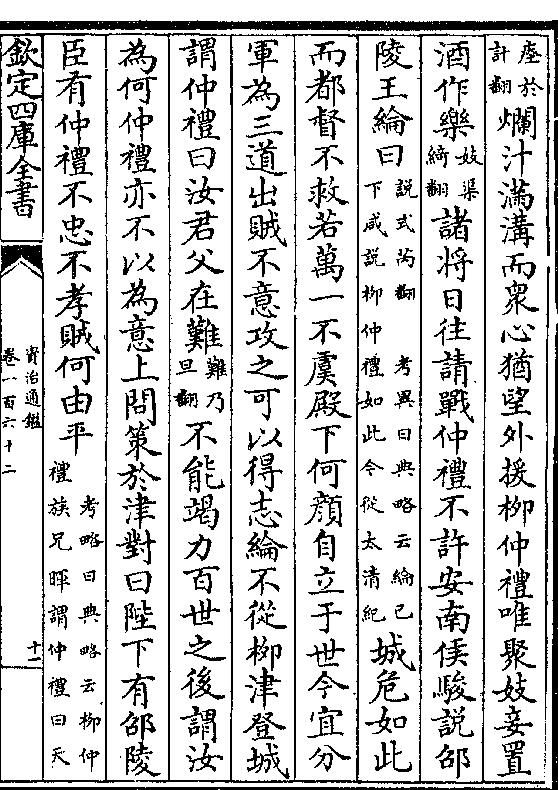 瘞於計翻爛汁滿溝而衆心猶望外援柳仲禮唯聚妓妾置
酒作樂妓渠綺翻諸將日往請戰仲禮不許安南侯駿説邵
陵王綸曰説式芮翻下咸説柳仲禮如此今從太清紀考異曰典略云綸已城危如此
而都督不救若萬一不虞殿下何顔自立于世今宜分
軍為三道出賊不意攻之可以得志綸不從柳津登城
謂仲禮曰汝君父在難難乃旦翻不能竭力百世之後謂汝
為何仲禮亦不以為意上問策於津對曰陛下有邵陵
臣有仲禮不忠不孝賊何由平考略曰典略云柳仲禮族兄暉謂仲禮曰天
欽定四庫全書
資治通鑑
卷一百六十二
十一